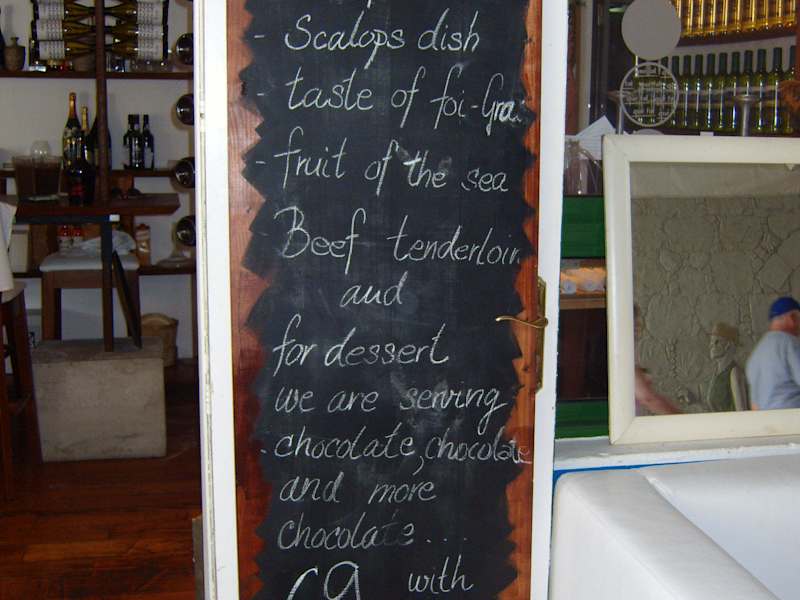 - Scalops dish
- taste of foi-Gra
- fruit of the sea
Beef tenderloin
and
for dessert
we are serving
- chocolate, chocolate
and more
chocolate....
with